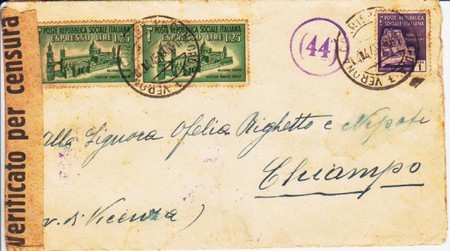 POSTE REPUBBLICA SOCIALE ITALIANA
ESPRESSO LIRE 1,25
POSTE REPUBBLICA SOCIALE ITALIANA
ESPRESSO LIRE 1,25
(44)
POSTE REPUBBLICA SOCIALE ITALIANA
VERONA
Verificato per censura
alla Signora Ofelia Righetto e Nipoti
Chiampo
(v. di Vicenza)